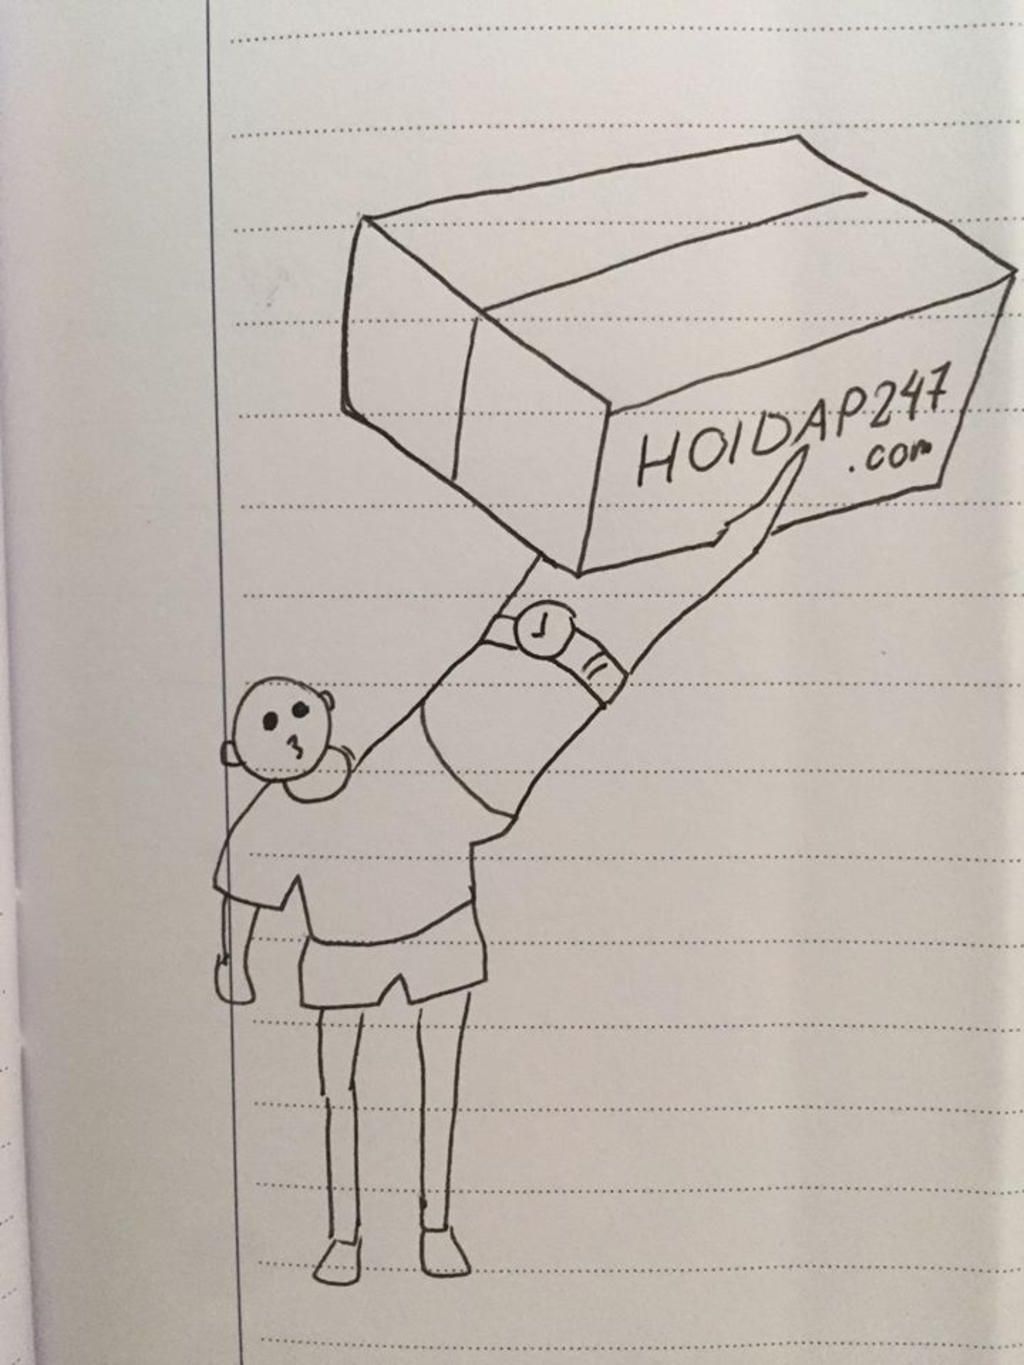 HOIDAP247
.com